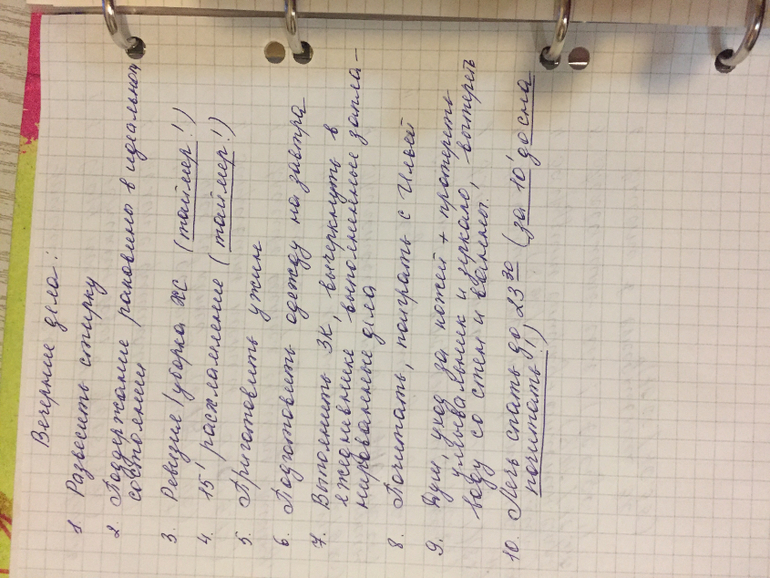 Вечерние дела:
1 Развесить стирку
2. Поддержание раковины в идеальном
состоянии
3. Ревизия/уборка ЖС (таймер!)
4. 15' расхламление (таймер!)
5. Приготовить ужин
6. Подготовить одежду на завтра
7. Выполнить ЗК, вычеркнуть в
ежедневнике выполненные запла-
нированные дела
8. Почитать, поиграть с Ильёй
9. Душ, уход за кожей + протереть
умывальник и зеркало, вытереть
воду со стен и ванны.
10. Лечь спать до 23 30 (за 10' до сна
почитать!)